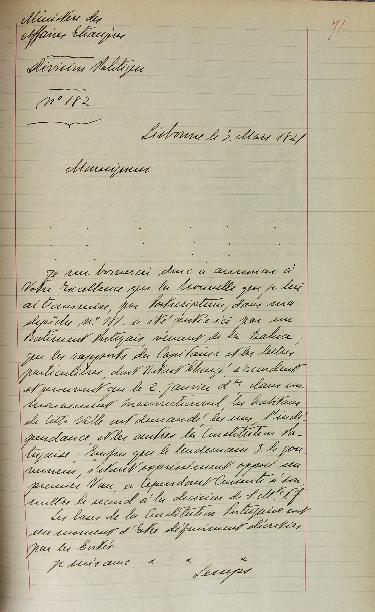 Ministère des
Affaires Etrangères
71.
Division Politique
Nº 182
Lisbonne le 3 Mars 1821
Monseigneur
Je me bornerai donc à annoncer à
Votre Excellence que la nouvelle que je lui
ai transmise, par Postscriptum, dans ma
dépêche Nº 181 a été portée ici par un
bâtiment Portugais venant de la Bahia,
que les rapports du Capitaine et les lettres
particulières, dont
et prouvent que le 2 janvier dr dans un
mouvement insurrectionnel les habitans
de cette ville ont demandé les uns l'indé
pendance et les autres la Constitution Por
tugaise. Lorsque que le lendemain 3 le gou
verneur, s'étant expressément opposé au
premier
mettre le second à la décision de S. M. T. F.
Les bases de la Constitution Portugaise sont
au moment d'être définitivement décrétées
par les Cortès.
Je suis avec " " "
Lesseps